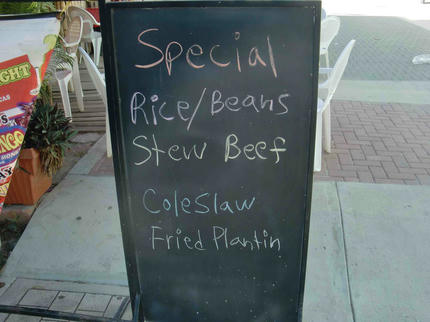 Special
Rice/Beans
Stew Beef
Coleslaw
Fried Plantin
GHT